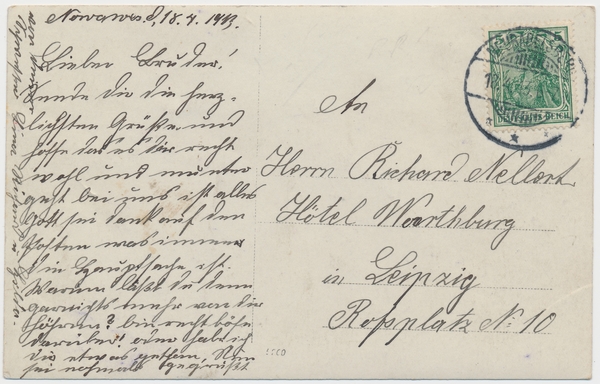 Nowawes d, 18. 4. 1913.
Lieber Bruder!
Sende dir die herz-
lichsten Grüße und
hoffe das es dir recht
wohl und munter
geht bei uns ist alles
Gott sei dank auf den
Posten was immer
die Hauptsache ist.
Warum läßt du denn
garnichts mehr von dir
höhren? bin recht böse
darüber! oder hab ich
die etwas gethan, Nun
sei nochmals gegrüßt
von
An
Herrn Richard Nellert
Hôtel Warthburg
in Leipzig
Roßplatz No 10
DEUTSCHES REICH